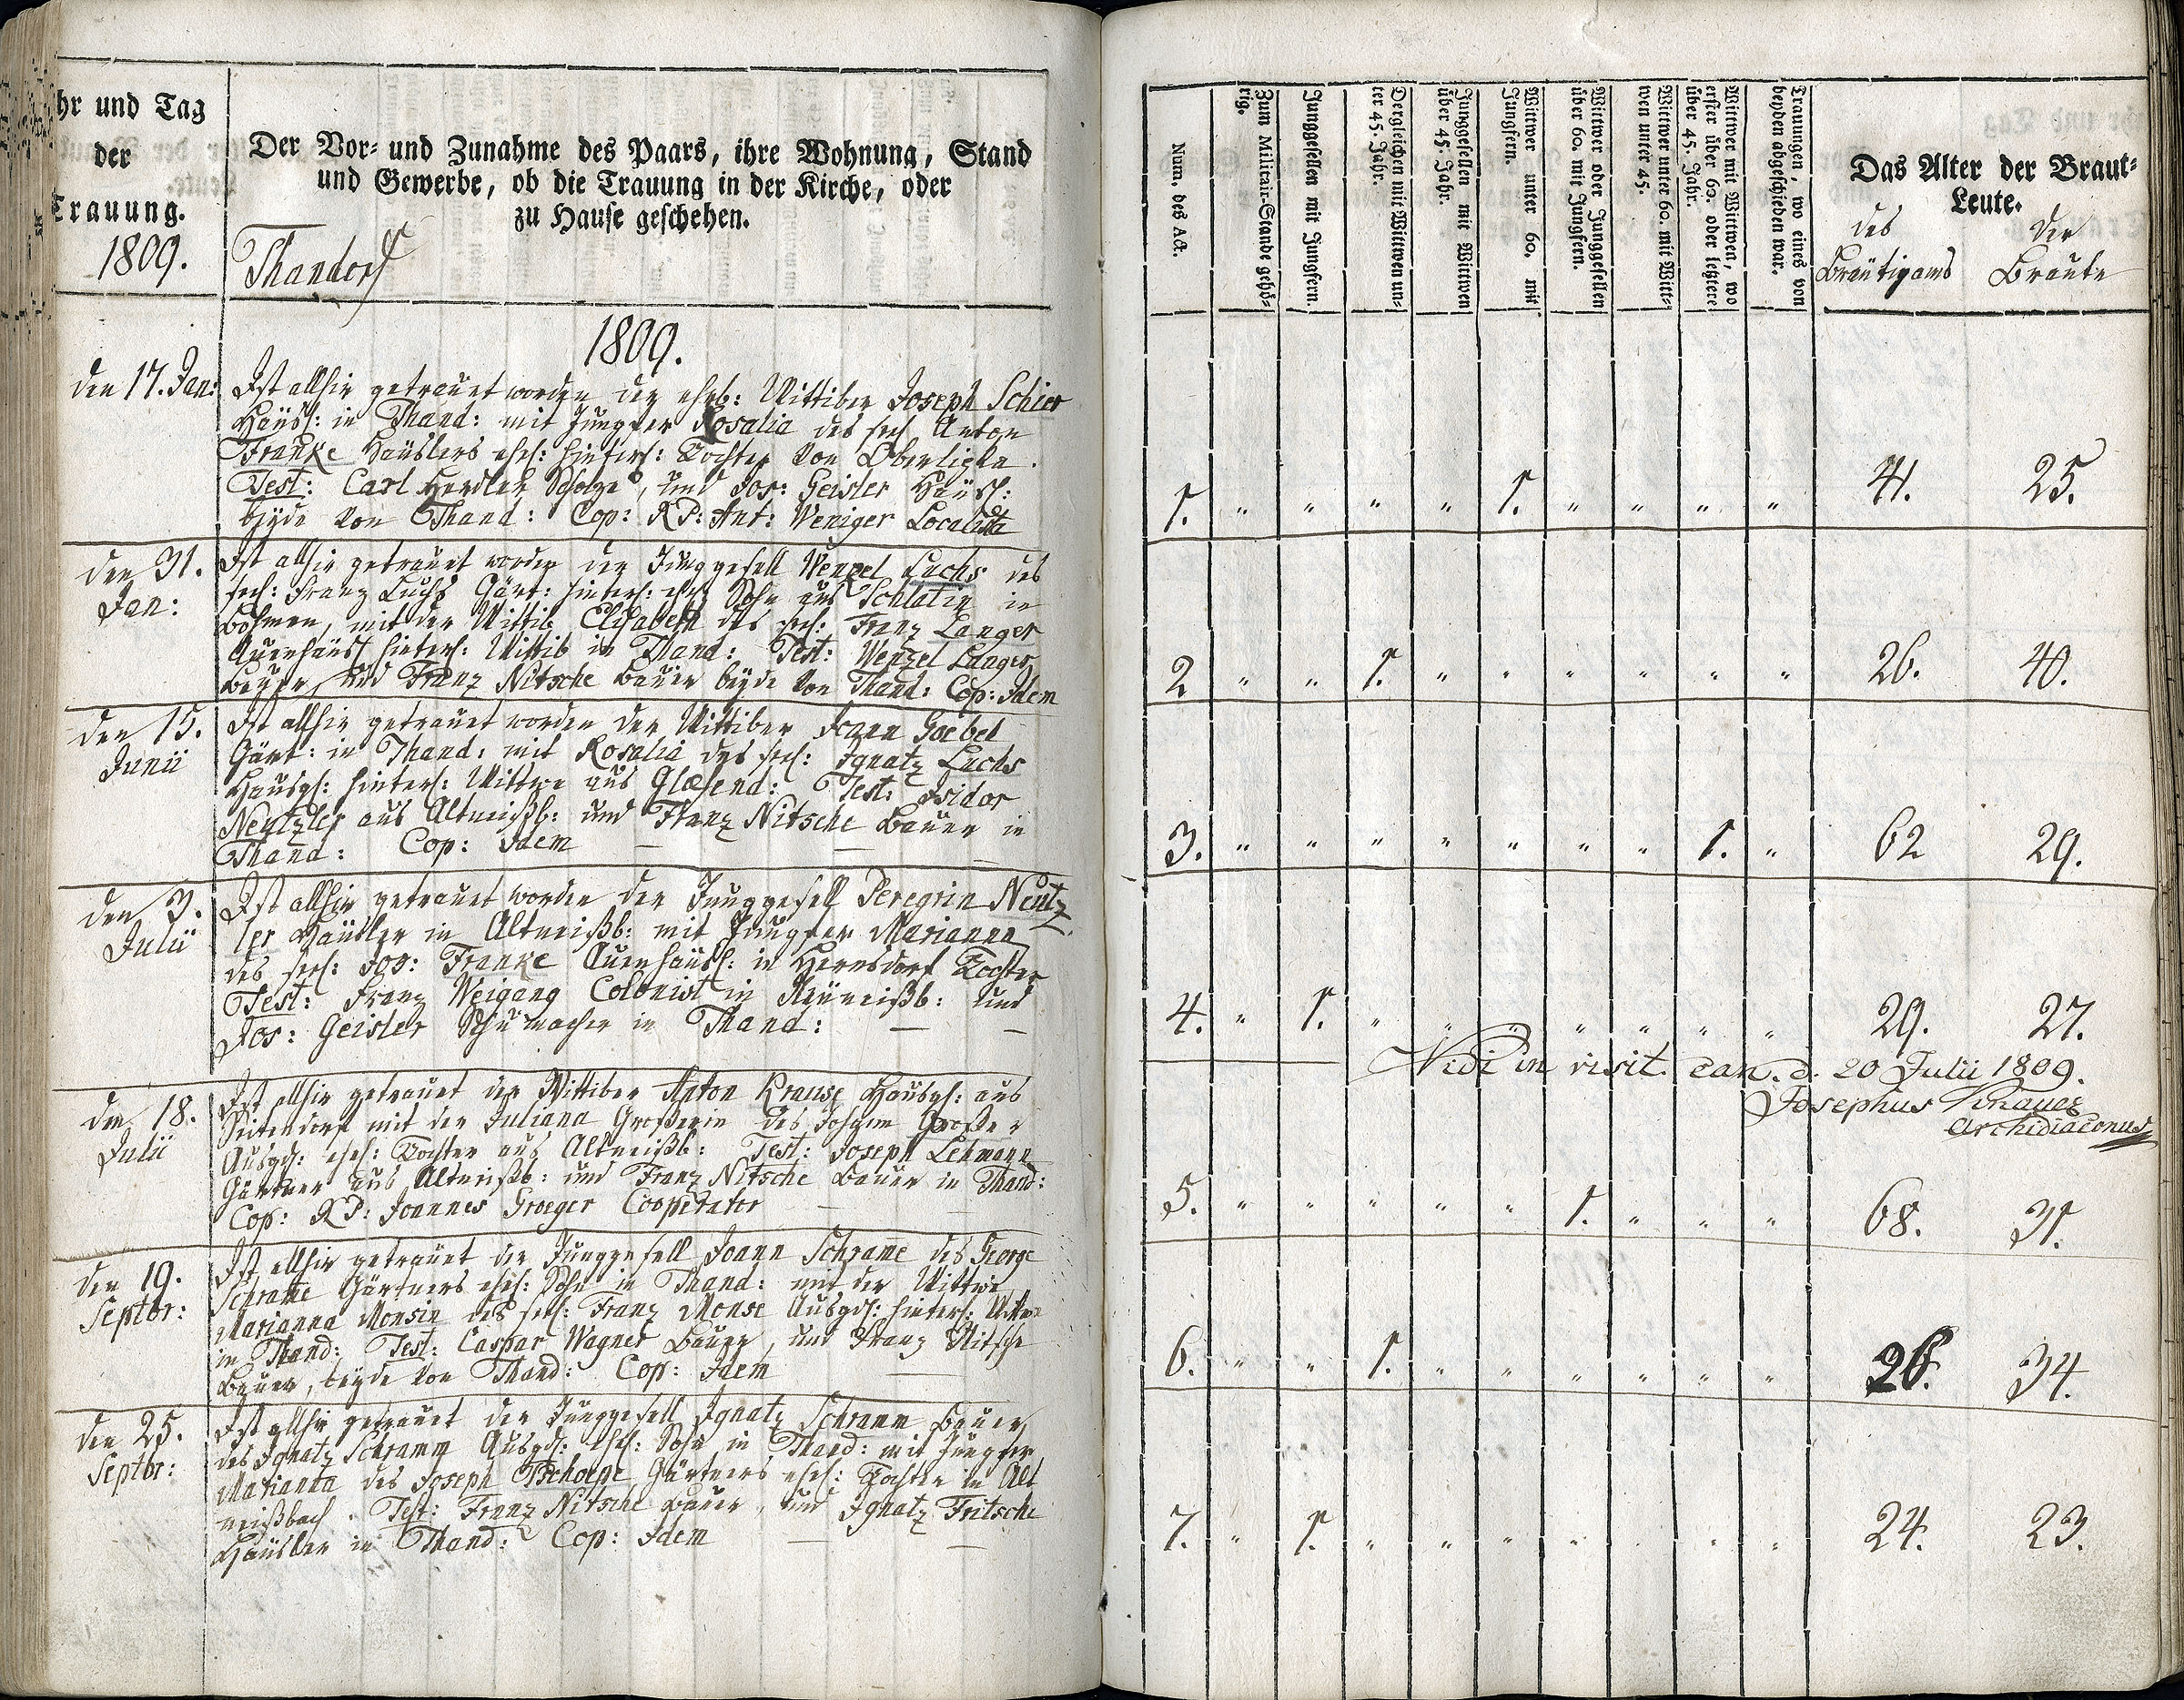 hr und Tag
der
Trauung.
1809.
Der Vor- und Zunahme des Paars, ihre Wohnung, Stand
und Gewerbe, ob die Trauung in der Kirche, oder
zu Hause geschehen.
Thandorf
1809.
den 17. Jan:
Ist allhir getrauet worden der ehrb: Wittiber Joseph Schier
Häusl: in Thand: mit Jungfer Rosalia des seel Anton
Franke Häuslers ehel: hinterl: Tochter von
Test: Carl Herdler Scholze, und Jos: Geisler Häusl:
beyde von Thand: Cop: RP: Ant: Weniger Localista
den 31.
Jan:
Ist allhir getrauet worden der Junggesell Wenzel Luchs des
seel: Franz Luchs Gärt: hinterl: ehel Sohn aus Schlatin in
Böhmen, mit der Wittib Elisabeth des seel: Franz Langer
Auenhäusl hinterl: Wittib in Thand: Test: Wenzel Langer
Bauer, und Franz Nitsche Bauer beyde von Thand: Cop: Idem
den 15.
Junii
Ist allhir getrauet worden der Wittiber Joann Goebel
Gärt: in Thand: mit Rosalia des seel: Ignatz Luchs
Hausgl: hinterl: Wittwe aus Glasend: Test: Isidor
Neutzler aus Altneißb: und Franz Nitsche Bauer in
Thand: Cop: Idem — — —
den 3.
Julii
Ist allhir getrauet worden der Junggesell Peregrin Neutz
ler Häusler in Altneißb: mit Jungfer Marianna
des seel: Jos: Franke Auenhäusl: in Hernsdorf Tochter
Test: Franz Weigang Colonist in Neuneißb: und
Jos: Geisler Schumacher in Thand: — —
den 18.
Julii
Ist allhir getrauet der Wittiber Anton Krause Hausgl: aus
Seitendorf mit der Juliana Großerin des Großer
Ausgd: ehel: Tochter aus Altneißb: Test: Joseph Lehmann
Gärtner aus Altneißb: und Franz Nitsche Bauer in Thand:
Cop: RP: Joannes Groeger Cooperator — —
den 19.
Septbr:
Ist allhir getrauet der Junggesell Joann Schrame des George
Schrame Gärtners ehel: Sohn in Thand: mit der Wittwe
Marianna Monsin des seel: Franz Monse Ausgd: hinterl: Wittwe
in Thand: Test: Caspar Wagner Bauer, und Franz Nitsche
Bauer, beyde von Thand: Cop: Idem —
den 25.
Septbr:
Ist allhir getrauet der Junggesell Ignatz Schramm Bauer
des Ignatz Schramm Ausgd: ehel: Sohn in Thand: mit Jungfer
Marianna des Joseph Tschoepe Gärtners ehel: Tochter in Alt
neißbach. Test: Franz Nitsche Bauer, und Ignatz Fritsche
Häusler in Thand: Cop: Idem — —
Num. des Act.
Zum Militair-Stande gehö-
rig.
Junggesellen mit Jungfern.
Dergleichen mit Wittwen un-
ter 45. Jahr.
Junggesellen mit Wittwen
über 45. Jahr.
Wittwer unter 60. mit
Jungfern.
Wittwer oder Junggesellen
über 60. mit Jungfern.
Wittwer unter 60. mit Witt-
wen unter 45.
Wittwer mit Wittwen, wo
erster über 60. oder letztere
über 45. Jahr.
Trauungen, wo eines von
beyden abgeschieden war.
Das Alter der Braut-
Leute.
des
Bräutigams
der
Braute
1. " " " " 1. " " " " 41. 25.
2 " " 1. " " " " " " 26. 40.
3. " " " " " " " 1. " 62 29.
4. " 1. " " " " " " " 29. 27.
Vidi in visit. can. d. 20 Julii 1809.
Josephus Knauer
Archidiaconus
5. " " " " " 1. " " " 68. 31.
6. " " 1. " " " " " " 26. 34.
7. " 1. " " " " " " " 24. 23.